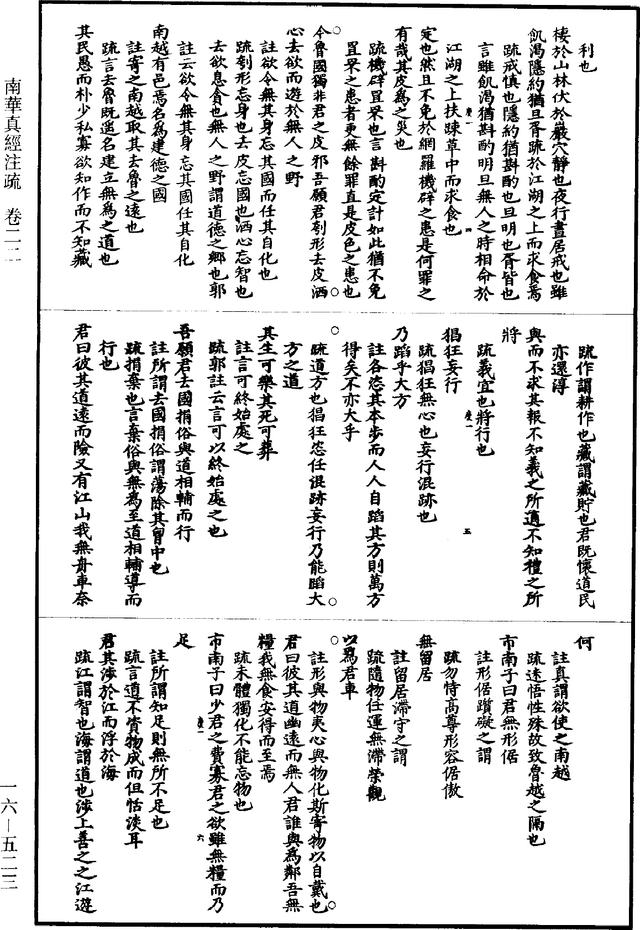 南華真經注疏　卷二二
利也
棲於山林伏於巖穴靜也夜行晝居戒也雖
飢渴隱約猶旦胥疏於江湖之上而求食焉
疏戒慎也隱約猶斟酌也旦明也胥皆也
言雖飢渴猶斟酌明旦無人之時相命於
江湖之上扶踈草中而求食也
定也然且不免於網羅機辟之患是何罪之
有哉其皮為之災也
疏機辟罝罘也言斟酌定計如此猶不免
罝罘之患者更無餘罪直是皮色之患也
今魯國獨非君之皮邪吾願君刳形去皮洒
心去欲而遊於無人之野
註欲令無其身忘其國而任其自化也
疏刳形忘身也去皮忘國也洒心忘智也
去欲息貪也無人之野謂道德之鄉也郭
註云欲令無其身忘其國任其自化
南越有邑焉名為建德之國
註寄之南越取其去魯之遠也
疏言去魯既遥名建立無為之道也
其民愚而朴少私寡欲知作而不知藏
疏作謂耕作也藏謂藏貯也君既懷道民
亦還淳
與而不求其報不知義之所適不知禮之所
將
疏義宜也將行也
猖狂妄行
疏猖狂無心也妄行混跡也
乃蹈乎大方
註各恣其本步而人人自蹈其方則萬方
得矣不亦大乎
疏道方也猖狂恣任混跡妄行乃能蹈大
方之道
其生可樂其死可葬
註言可終始處之
疏郭註云言可以終始處之也
吾願君去國捐俗與道相輔而行
註所謂去國捐俗謂蕩除其胷中也
疏捐棄也言棄俗與無為至道相輔導而
行也
君曰彼其道遠而險又有江山我無舟車奈
何
註真謂欲使之南越
疏迷悟性殊故致魯越之隔也
市南子曰君無形倨
註形倨躓礙之謂
疏勿恃高尊形容倨傲
無留居
註留居滯守之謂
疏隨物任運無滯榮觀
以為君車
註形與物夷心與物化斯寄物以自載也
君曰彼其道幽遠而無人君誰與為鄰吾無
糧我無食安得而至焉
疏未體獨化不能忘物也
市南子曰少君之費寡君之欲雖無糧而乃
足
註所謂知足則無所不足也
疏言道不資物成而但恬淡耳
君其涉於江而浮於海
疏江謂智也海謂道也涉上善之之江遊
一六—五二三